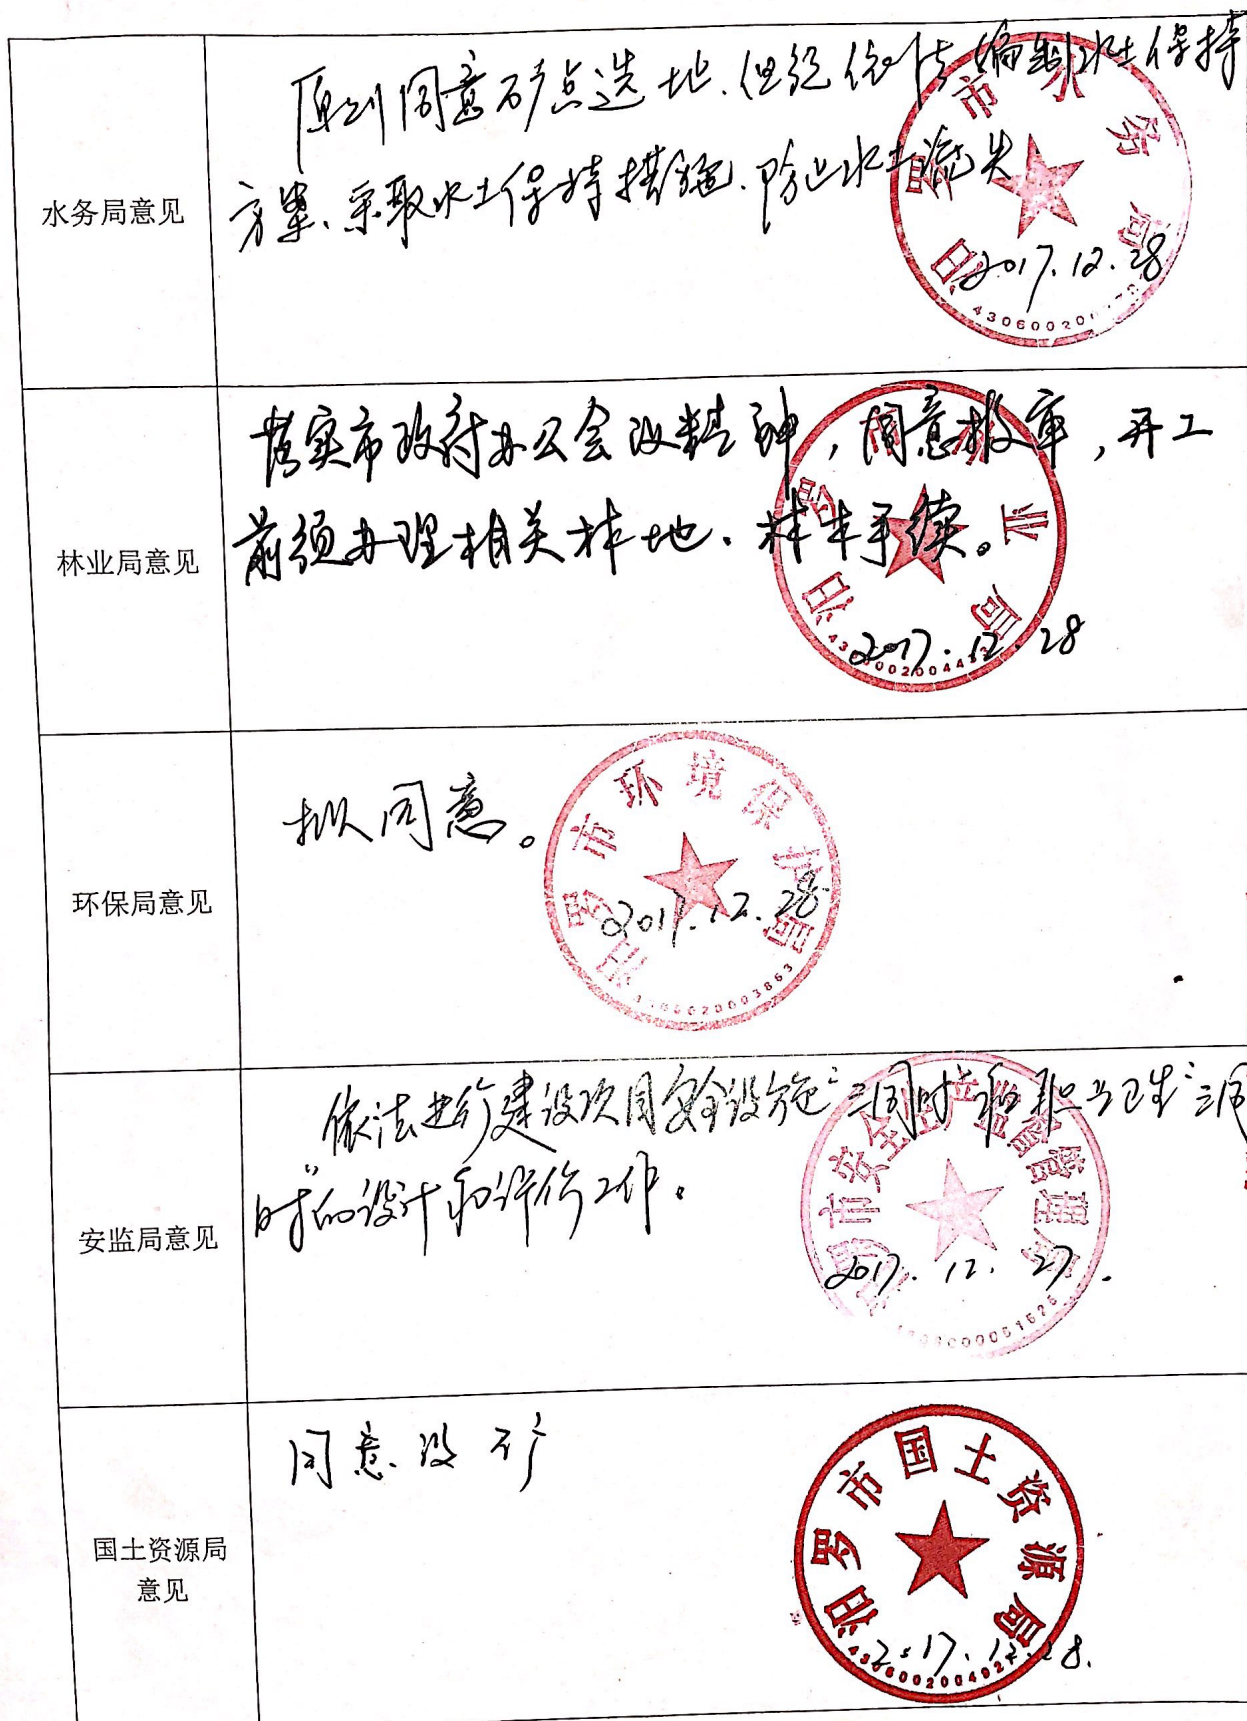 水务局意见
原则同意矿点选地、但须依法编制水土保持
方案、采取水土保持措施、防止水土流失
汨罗市水务局
2017.12.28
林业局意见
落实市政府办公会议精神，同意报审，开工
前须办理相关林地、林木手续。
汨罗市林业局
2017.12.28
环保局意见
拟同意。
汨罗市环境保护局
2017.12.28
43060020003863
安监局意见
依法进行建设项目安全设施“三同时”和职业卫生“三同
时”的设计和评价工作。
汨罗市安全生产监督管理局
2017.12.27.
国土资源局
意见
同意设矿
汨罗市国土资源局
2017.12.28.